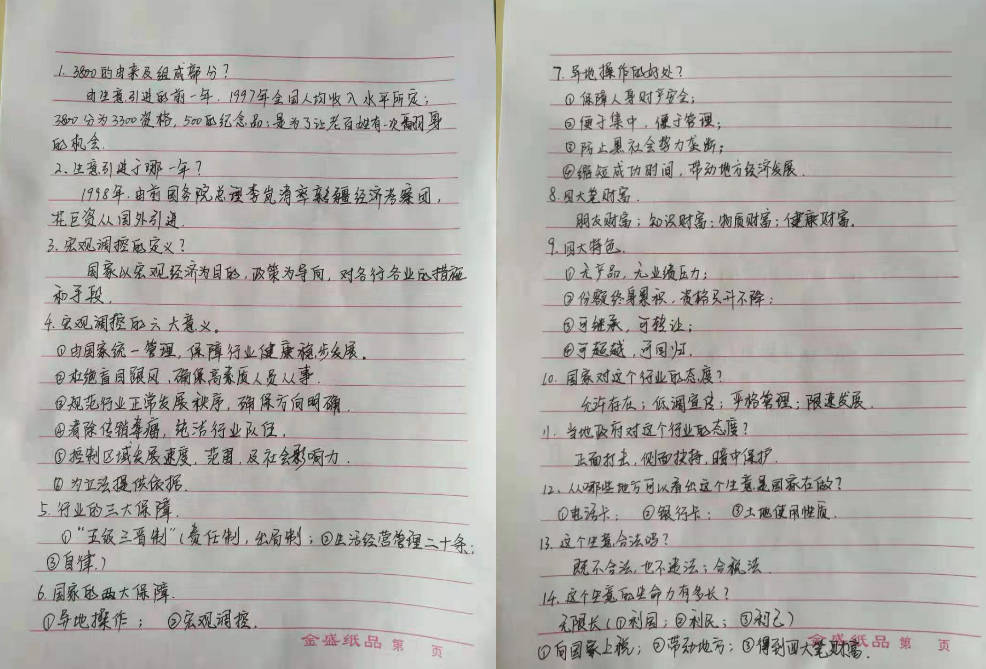 1. 3800的由来及组成部分？
由生意引进的前一年, 1997年全国人均收入水平所定；
3800分为3300资格, 500的纪念品；是为了让老百姓有一次翻身
的机会.
2. 生意引进于哪一年？
1998年. 由前国务院总理李岚清率新疆经济考察团,
花巨资从国外引进.
3. 宏观调控的定义？
国家以宏观经济为目的, 政策为导向, 对各行各业的措施
和手段.
4. 宏观调控的六大意义。
①由国家统一管理, 保障行业健康稳步发展。
②杜绝盲目跟风, 确保高素质人员从事.
③规范行业正常发展秩序, 确保方向明确.
④清除传销毒瘤, 纯洁行业队伍.
⑤控制区域发展速度, 范围, 及社会影响力.
⑥为立法提供依据.
5. 行业的三大保障.
①“五级三晋制”(责任制, 出局制；②生活经营管理二十条；
③自律.)
6. 国家的两大保障.
①异地操作； ②宏观调控.
金盛纸品 第 页
7. 异地操作的好处？
①保障人身财产安全；
②便于集中, 便于管理；
③防止黑社会势力垄断；
④缩短成功时间, 带动地方经济发展.
8. 四大笔财富.
朋友财富；知识财富；物质财富；健康财富.
9. 四大特色.
①无产品, 无业绩压力；
②份额终身累积, 资格只升不降；
③可继承, 可转让；
④可超越, 可回归.
10. 国家对这个行业的态度？
允许存在；低调宣传；严格管理；限速发展.
11. 当地政府对这个行业的态度？
正面打击, 侧面扶持, 暗中保护.
12. 从哪些地方可以看出这个生意是国家在做？
①电话卡； ②银行卡； ③土地使用性质.
13. 这个生意合法吗？
既不合法, 也不违法；合税法.
14. 这个生意的生命力有多长？
无限长(①利国；②利民；③利己)
①向国家上税；②带动地方；③得到四大笔财富.
金盛纸品 第 页